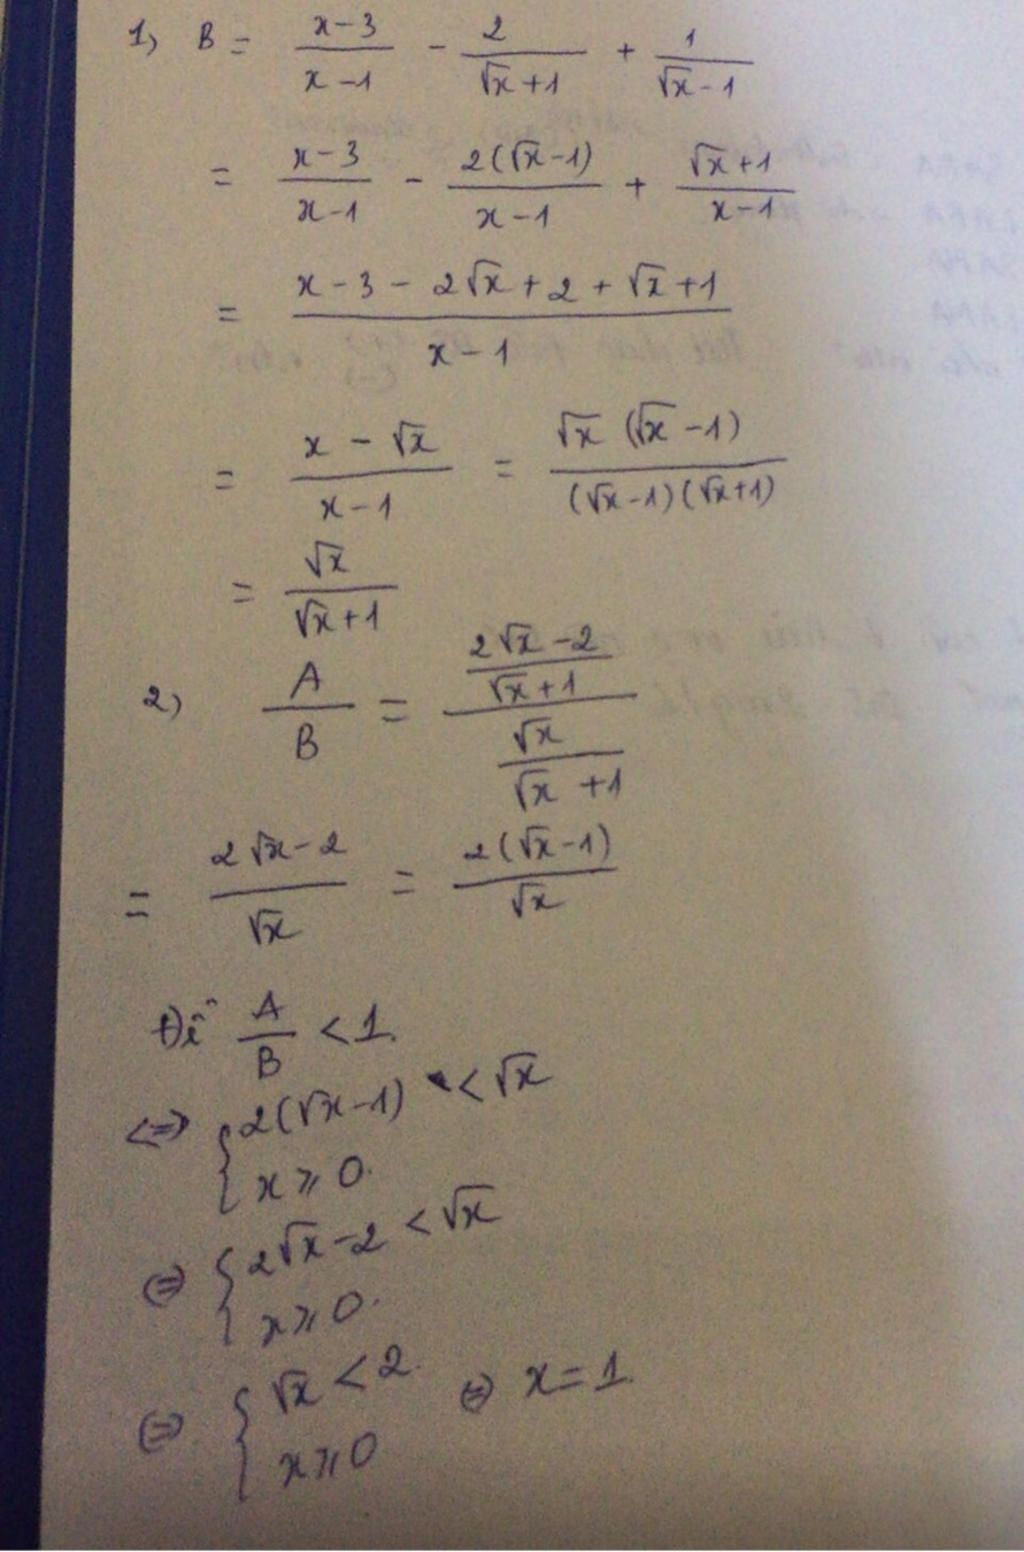 1) B = \frac{x-3}{x-1} - \frac{2}{\sqrt{x}+1} + \frac{1}{\sqrt{x}-1}
= \frac{x-3}{x-1} - \frac{2(\sqrt{x}-1)}{x-1} + \frac{\sqrt{x}+1}{x-1}
= \frac{x-3-2\sqrt{x}+2+\sqrt{x}+1}{x-1}
= \frac{x-\sqrt{x}}{x-1} = \frac{\sqrt{x}(\sqrt{x}-1)}{(\sqrt{x}-1)(\sqrt{x}+1)}
= \frac{\sqrt{x}}{\sqrt{x}+1}
2) \frac{A}{B} = \frac{\frac{2\sqrt{x}-2}{\sqrt{x}+1}}{\frac{\sqrt{x}}{\sqrt{x}+1}}
= \frac{2\sqrt{x}-2}{\sqrt{x}} = \frac{2(\sqrt{x}-1)}{\sqrt{x}}
\frac{A}{B} < 1.
<=> { 2(\sqrt{x}-1) < \sqrt{x}
x ⩾ 0.
<=> { 2\sqrt{x}-2 < \sqrt{x}
x ⩾ 0.
<=> { \sqrt{x} < 2. <=> x = 1.
x ⩾ 0